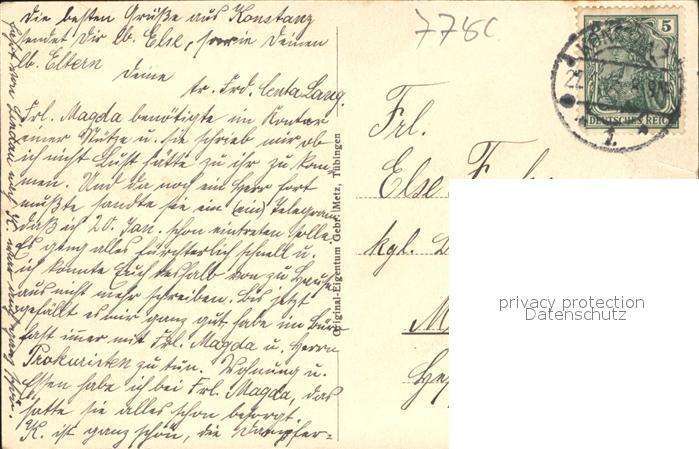 Die besten Grüße aus Konstanz
sendet Dir lb. Else, sowie Deinen
lb. Eltern
Deine
tr. Frd. Centa Lang.
Frl. Magda benötigte im Kontor
einer Stütze u. sie schrieb mir ob
ich nicht Lust hätte zu ihr zu kom-
men. Und da noch ein Herr fort
mußte sandte sie ein (ein) Telegram
daß ich 20. Jan. schon eintreten solle.
Es ging alles fürchterlich schnell u.
ich konnte Euch deshalb von zu Hause
aus nicht mehr schreiben. Bis jetzt
gefällt es mir ganz gut, habe im Büro
fast immer mit Frl. Magda u. Herrn
Prokuristen zu tun. Wohnung u.
Essen habe ich bei Frl. Magda, das
hatte sie alles schon besorgt.
K. ist ganz schön, die Dampfer-
fahrt von Lindau nach K. war
Original-Eigentum Gebr. Metz, Tübingen
778C
5
DEUTSCHES REICH
1.
Frl.
Else
kgl.
M
privacy protection
Datenschutz